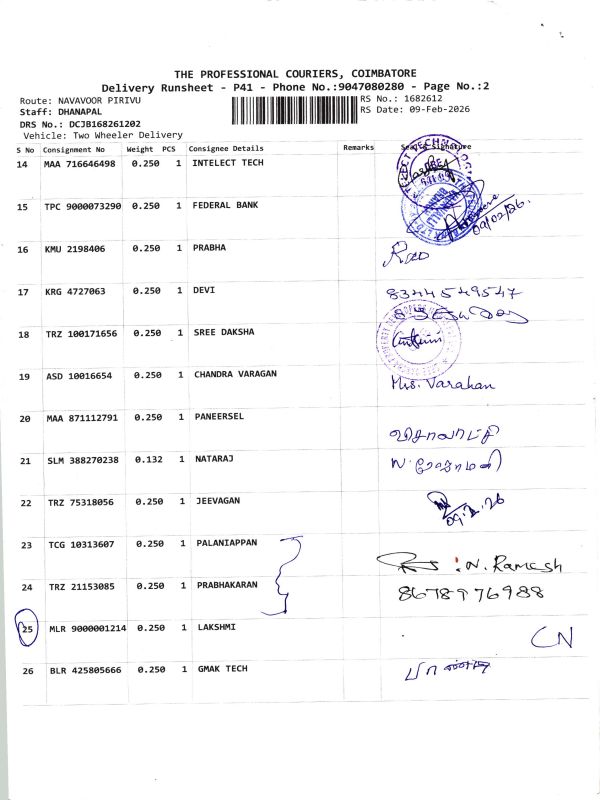 THE PROFESSIONAL COURIERS, COIMBATORE
Delivery Runsheet - P41 - Phone No.:9047080280 - Page No.:2
Route: NAVAVOOR PIRIVU
RS No.: 1682612
Staff: DHANAPAL
RS Date: 09-Feb-2026
DRS No.: DCJB168261202
Vehicle: Two Wheeler Delivery
S No Consignment No Weight PCS Consignee Details Remarks Seal & Signature
14 MAA 716646498 0.250 1 INTELECT TECH
15 TPC 9000073290 0.250 1 FEDERAL BANK 09/02/26.
16 KMU 2198406 0.250 1 PRABHA
17 KRG 4727063 0.250 1 DEVI 8344549547
18 TRZ 100171656 0.250 1 SREE DAKSHA
19 ASD 10016654 0.250 1 CHANDRA VARAGAN Mrs. Varahan
20 MAA 871112791 0.250 1 PANEERSEL விசாலாட்சி
21 SLM 388270238 0.132 1 NATARAJ
22 TRZ 75318056 0.250 1 JEEVAGAN 09.2.26
23 TCG 10313607 0.250 1 PALANIAPPAN : N. Ramesh
24 TRZ 21153085 0.250 1 PRABHAKARAN 8678976988
25 MLR 9000001214 0.250 1 LAKSHMI CN
26 BLR 425805666 0.250 1 GMAK TECH